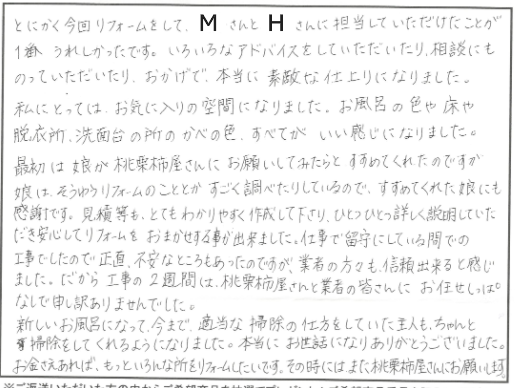 とにかく今回リフォームをして、MさんとHさんに担当していただけたことが
1番うれしかったです。いろいろなアドバイスをしていただいたり、相談にも
のっていただいたり、おかげで、本当に素敵な仕上りになりました。
私にとっては、お気に入りの空間になりました。お風呂の色や床や
脱衣所、洗面台の所のかべの色、すべてがいい感じになりました。
最初は娘が桃栗柿屋さんにお願いしてみたらとすすめてくれたのですが
娘は、そうゆうリフォームのこととかすごく調べたりしているので、すすめてくれた娘にも
感謝です。見積等も、とてもわかりやすく作成して下さり、ひとつひとつ詳しく説明していた
だき安心してリフォームをおまかせする事が出来ました。仕事で留守にしている間での
工事でしたので正直、不安なところもあったのですが、業者の方々も、信頼出来ると感じ
ました。だから工事の2週間は、桃栗柿屋さんと業者の皆さんにお任せしっぱ
なしで申し訳ありませんでした。
新しいお風呂になって、今まで、適当な掃除の仕方をしていた主人も、ちゃんと
掃除をしてくれるようになりました。本当にお世話になりありがとうございました。
お金さえあれば、もっといろんな所をリフォームしたいです。その時にはまた桃栗柿屋さんにお願いします